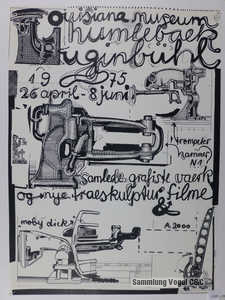 Louisiana museum
humlebaek
Luginbühl
1975
26 april - 8 juni
trompeter
hammer
N1
samlede grafiske vaerk
og nye traeskulptur filme
&
moby dick
A 2000
Sammlung Vogel C&C